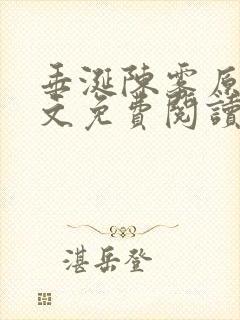 垂涎陳雾原
文免費閱讀
湛岳登